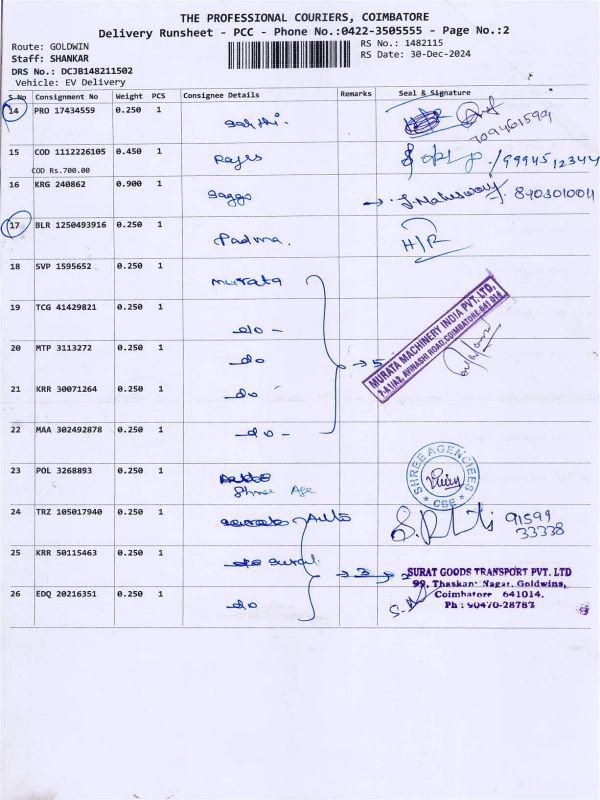 THE PROFESSIONAL COURIERS, COIMBATORE
Delivery Runsheet - PCC - Phone No.:0422-3505555 - Page No.:2
Route: GOLDWIN
RS No.: 1482115
Staff: SHANKAR
RS Date: 30-Dec-2024
DRS No.: DCJB148211502
Vehicle: EV Delivery
S No Consignment No Weight PCS Consignee Details Remarks Seal & Signature
14 PRO 17434559 0.250 1
15 COD 1112226105 0.450 1 Rajes
COD Rs.700.00
16 KRG 240862 0.900 1 Saggo J. Maheswary 8903010011
17 BLR 1250493916 0.250 1 Padma. H/R
18 SVP 1595652 0.250 1 murata
19 TCG 41429821 0.250 1 do -
20 MTP 3113272 0.250 1 do 5
21 KRR 30071264 0.250 1 do
22 MAA 302492878 0.250 1 do -
MURATA MACHINERY INDIA PVT. LTD,
7-A1/A2, AVINASHI ROAD, COIMBATORE-641 014
23 POL 3268893 0.250 1
Shree Age
SHREE AGENCIEES
CBE
24 TRZ 105017940 0.250 1 Auto 91599
33338
25 KRR 50115463 0.250 1 Surat 3
SURAT GOODS TRANSPORT PVT. LTD
99, Thaskar Nagar, Goldwins,
Coimbatore 641014.
Ph : 90470-28787
26 EDQ 20216351 0.250 1 do